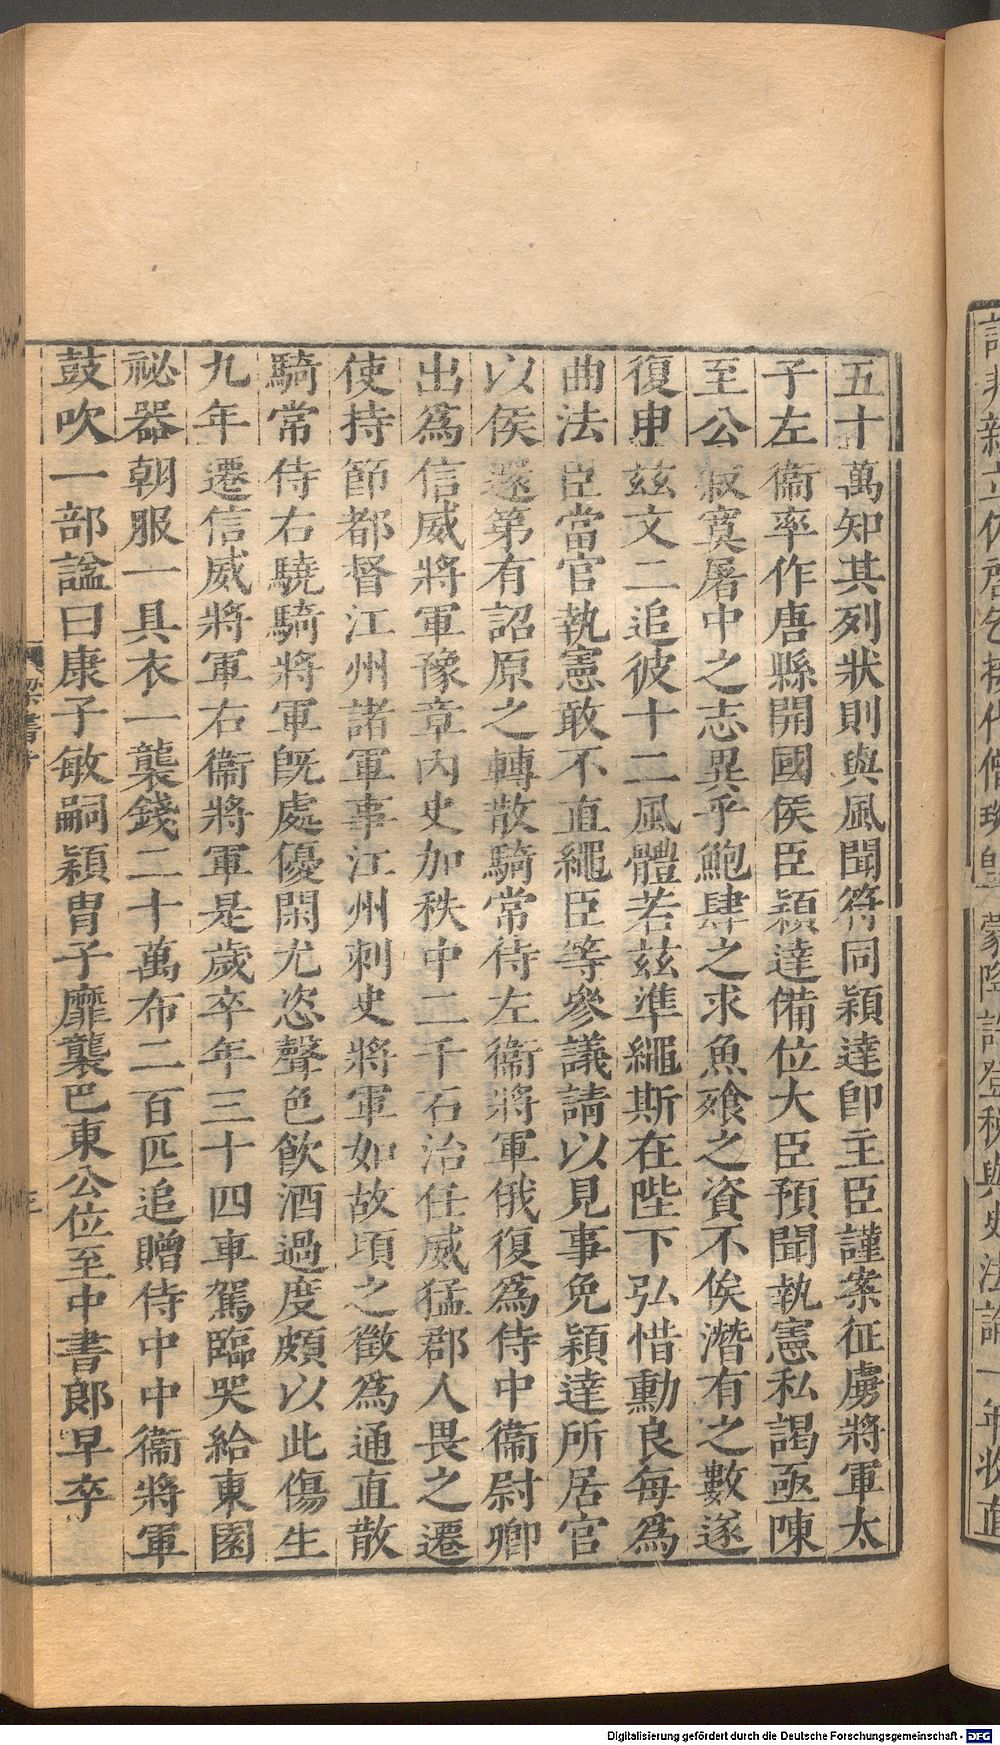 五十萬知其列狀則與風聞符同穎達卽主臣謹案征虜將軍太
子左衞率作唐縣開國侯臣穎達備位大臣預聞執憲私謁亟陳
至公寂寞屠中之志異乎鮑肆之求魚飱之資不俟潛有之數遂
復申茲文二追彼十二風體若茲準繩斯在陛下弘惜勳良每爲
曲法臣當官執憲敢不直繩臣等參議請以見事免穎達所居官
以侯還第有詔原之轉散騎常侍左衞將軍俄復爲侍中衞尉卿
出爲信威將軍豫章內史加秩中二千石治任威猛郡人畏之遷
使持節都督江州諸軍事江州刺史將軍如故頃之徵爲通直散
騎常侍右驍騎將軍旣處優閑尤恣聲色飮酒過度頗以此傷生
九年遷信威將軍右衞將軍是歲卒年三十四車駕臨哭給東園
祕器朝服一具衣一襲錢二十萬布二百匹追贈侍中中衞將軍
鼓吹一部謚曰康子敏嗣穎胄子靡襲巴東公位至中書郎早卒
梁書十
Digitalisierung gefördert durch die Deutsche Forschungsgemeinschaft - DFG